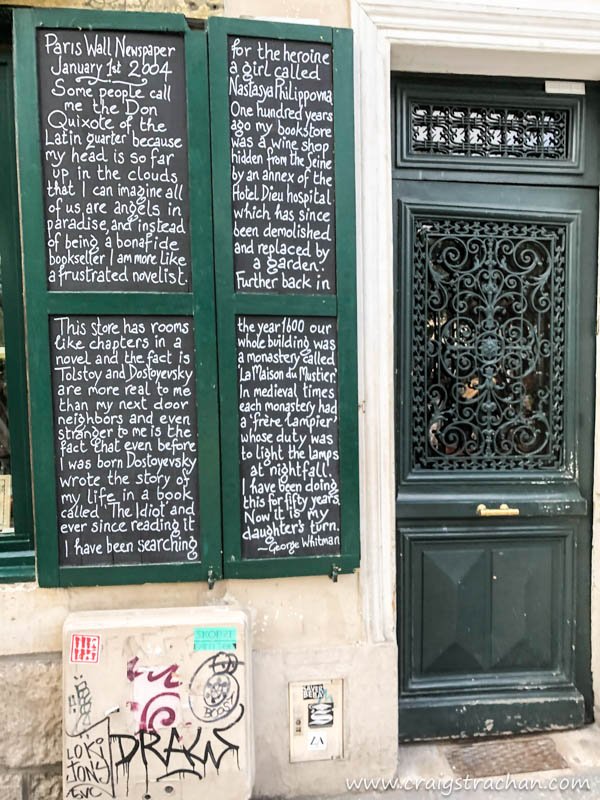 Paris Wall Newspaper
January 1st 2004
Some people call
me the Don
Quixote of the
Latin quarter because
my head is so far
up in the clouds
that I can imagine all
of us are angels in
paradise, and instead
of being a bonafide
bookseller I am more like
a frustrated novelist.
This store has rooms
like chapters in a
novel and the fact is
Tolstoy and Dostoyevsky
are more real to me
than my next door
neighbors and even
stranger to me is the
fact that even before
I was born Dostoyevsky
wrote the story of
my life in a book
called "The Idiot" and
ever since reading it
I have been searching
for the heroine
a girl called
Nastasya Philippovna
One hundred years
ago my bookstore
was a wine shop
hidden from the Seine
by an annex of the
Hotel Dieu hospital
which has since
been demolished
and replaced by
a garden.
Further back in
the year 1600 our
whole building was
a monastery called
'La Maison du Mustier.'
In medieval times
each monastery had
a 'frère lampier'
whose duty was
to light the lamps
at nightfall.
I have been doing
this for fifty years.
Now it is my
daughter's turn.
~George Whitman
LOKI
DRAW
www.craigstrachan.com